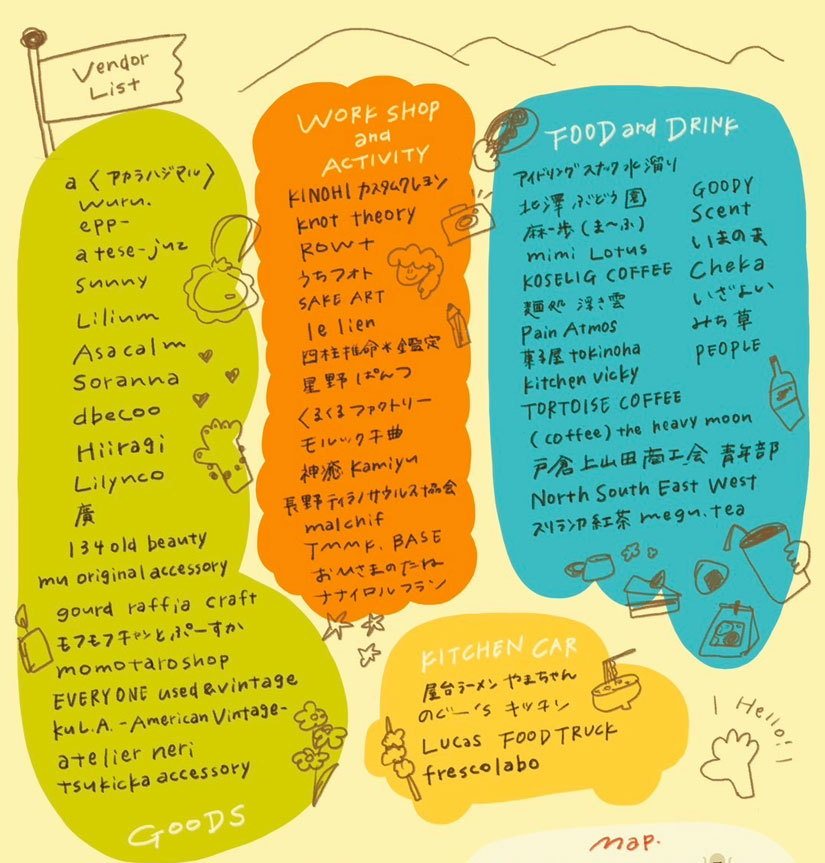 Vendor
List
a〈アカラハジマル〉
wuru.
epp-
atese-juz
sunny
Lilium
Asacalm
Soranna
dbecoo
Hiiragi
Lilynco
廣
134old beauty
mu original accessory
gourd raffia craft
モフモフチャンとぷーすか
momotaroshop
EVERYONE used&vintage
kuL.A. -American Vintage-
atelier neri
tsukicka accessory
GOODS
WORK SHOP
and
ACTIVITY
KINOHI カスタムクレヨン
knot theory
ROWt
うちフォト
SAKE ART
le lien
四柱推命*鑑定
星野ぱんつ
くるくるファクトリー
モルック千曲
神癒 kamiyu
長野ティラノサウルス協会
malchif
TMMK. BASE
おひさまのたね
ナナイロルフラン
FOOD and DRINK
アイドリングスナック水溜り
北澤ぶどう園
麻一歩(ま〜ふ)
mimi Lotus
KOSELIG COFFEE
麺処 浮き雲
Pain Atmos
菓子屋 tokinoha
kitchen vicky
TORTOISE COFFEE
(coffee) the heavy moon
戸倉上山田商工会 青年部
North South East West
スリランカ紅茶 megu.tea
GOODY
Scent
いまのま
Cheka
いざよい
みち草
PEOPLE
KITCHEN CAR
屋台ラーメン やまちゃん
のぐー's キッチン
Lucas FOOD TRUCK
frescolabo
Hello!!
map.